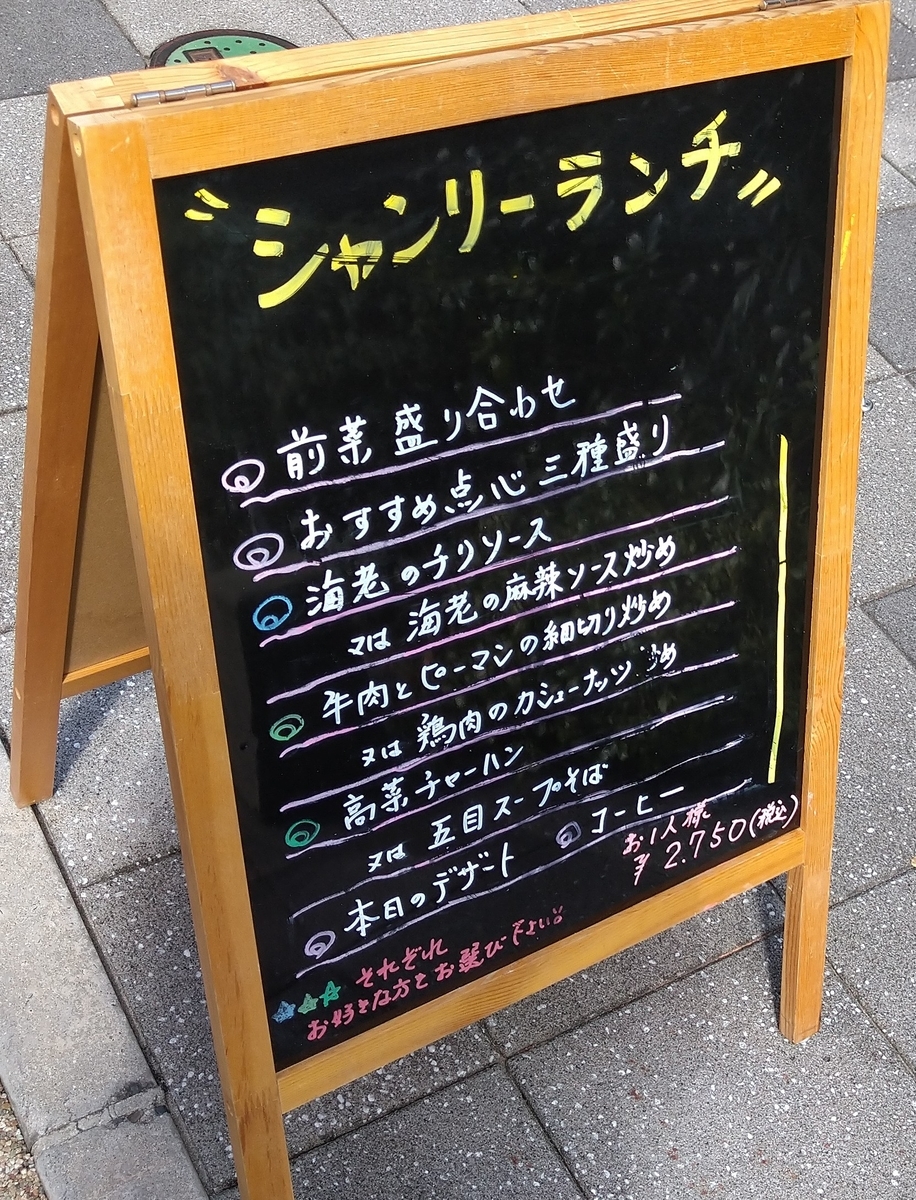 "シャンリーランチ"
前菜盛り合わせ
おすすめ点心三種盛り
海老のチリソース
又は 海老の麻辣ソース炒め
牛肉とピーマンの細切り炒め
又は 鶏肉のカシューナッツ炒め
高菜チャーハン
又は 五目スープそば
本日のデザート ◎コーヒー
お1人様
¥2.750(税込)
☆☆☆ それぞれ
お好きな方をお選び下さい。